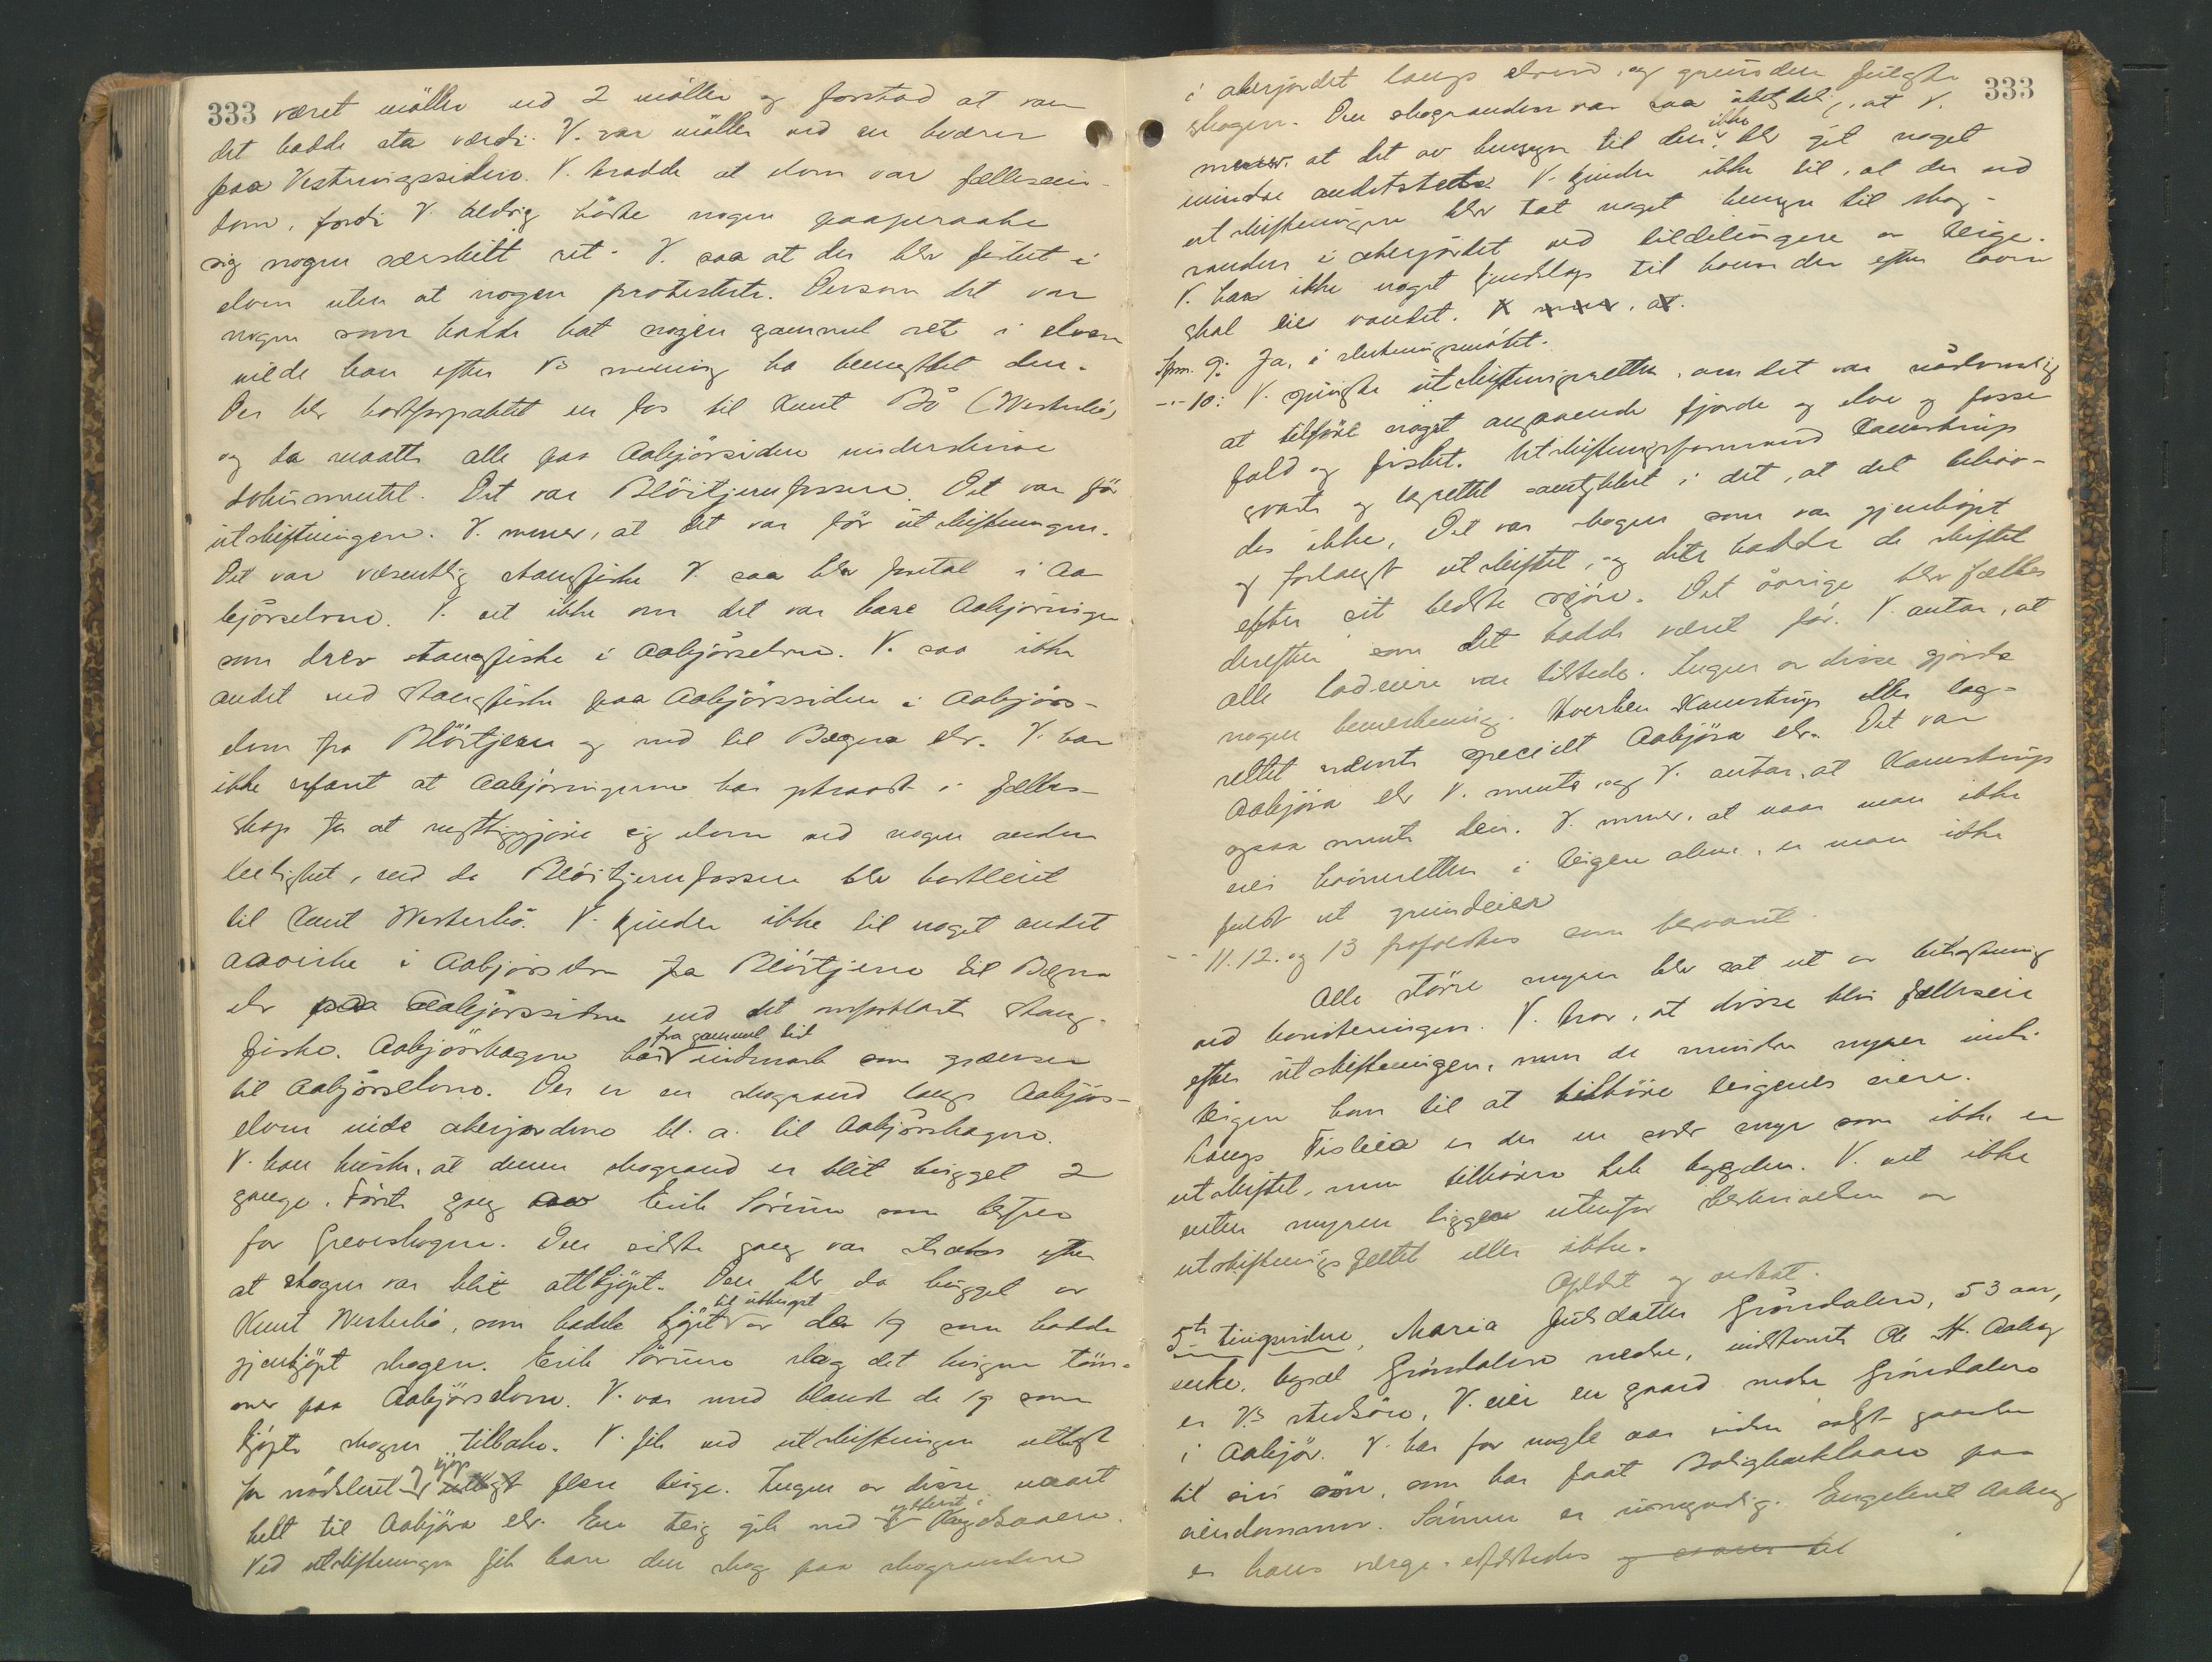 333 været möller ved 2 möller og forstod at van
det hadde sta værdi. V. var möller ved en kværn
paa Vestringssiden. V. trodde at elven var fælleseien-
dom, fordi V. aldrig hörte nogen paaperaabe
sig nogen særskilt ret. V. saa at der blev fisket i
elven uten at nogen protesterte. Dersom det var
nogen som hadde hat nogen gammel ret i elven
vilde han efter V's mening ha benyttet den.
Der blev bortforpaktet en fos til Knut Bö (Westerbö)
og da maatte alle paa Aabjörsiden underskrive
dokumentet. Det var Blöitjernfossen. Det var för
utskiftningen. V. mener, at det var för utskiftningen.
Det var væsentlig stangfiske V. saa blev foretat i Aa
björselven. V. vet ikke om det var bare Aabjöringer
som drev stangfiske i Aabjörselven. V. saa ikke
andet end stangfiske paa Aabjörssiden i Aabjörs-
elven fra Blöitjern og ned til Bægna elv. V. har
ikke erfaret at Aabjöringerne har optraadt i fælles-
skap for at nyttiggjöre sig elven ved nogen anden
leilighet, end da Blöitjernfossen blev bortleiet
til Knut Westerbö. V. kjender ikke til noget andet
aavirke i Aabjörs elven fra Blöitjern til Bægna
elv paa Aabjörssiden end det omforklarte stang-
fiske. Aabjörskogen har fra gammel tid utmark som grænser
til Aabjörselven. Der er en skogrand langs Aabjörs-
elven inde akerjordene bl. a. til Aabjörshagene.
V. kan huske, at denne skogrand er blit hugget 2
gange. Förste gang av Erik Sörum som bestyrer
for Greveskogene. Den sidste gang var straks efter
at skogen var blit attkjöpt. Den blev da hugget av
Knut Westerbö, som hadde kjöpt til uthugst av de 19 som hadde
gjenkjöpt skogen. Erik Sörum slog det hugne töm-
mer paa Aabjörselven. V. var med blandt de 19 som
kjöpte skogen tilbake. V. fik ved utskiftningen utlagt
for nödslent og kjöp flere teige. Ingen av disse naadt
helt til Aabjöra elv. En teig gik ned
Ved utskiftningen fik han den skog paa skogranden
333
i akerjordet langs elven, og grunden fulgte
skogen. Den skogranden var saa ubetydelig, at V.
mener at det av hensyn til den ikke blev git noget
mindre andetsteds. V. kjender ikke til, at der ved
utskiftningen blev tat noget hensyn til skog-
randen i akerjordet ved tildelingene av teige.
V. har ikke noget kjendskap til hvem der efter loven
skal eie vandet.
Spm. 9: Ja, i slutningsmötet.
-"- 10: V. spurgte utskiftningsretten, om det var nödvendig
at tilföie noget angaaende fjorde og elve og fosse
fald og fisket. Utskiftningsformand Kamstrup
svarte og lagrettet samtykket i det, at det behöv-
des ikke. Det var skogen som var gjenkjöpt
og forlangt utskiftet, og dette hadde de skiftet
efter sit bedste skjön. Det övrige blev fælles
derefter som det hadde været för. V. antar, at
alle lodeiere var tilstede. Ingen av disse gjorde
nogen bemerkning. Hverken Kamstrup eller lag-
rettet nævnte specielt Aabjöra elv. Det var
Aabjöra elv V. mente, og V. antar, at Kamstrup
ogsaa mente den. V. mener, at naar man ikke
eier havneretten i teigene alene, er man ikke
fuldt ut grundeier
-"- 11. 12. og 13 frafaldtes som besvart.
Alle större myrer blev sat ut av betragtning
ved boniteringen. V. tror, at disse blev fælleseie
efter utskiftningen, men de mindre myrer inde
teigen kom til at tilhöre teigenes eiere.
Langs Tisleia er der en svær myr som ikke er
utskiftet, men tilhörer hele bygden. V. vet ikke
enten myren ligger utenfor beskrivelsen av
utskiftningsfeltet eller ikke.
Oplæst og vedtat.
5te tingsvidne, Maria Julsdatter Gröndalen, 53 aar,
enke, bopæl Gröndalen nedre, Ole K. Aaberg
er V's stedsön, V. eier en gaard nedre Gröndalen
i Aabjör. V. har for nogle aar siden solgt gaarden
til sin sön, som har faat Boligbanklaan paa
eiendommen. Sönnen er umyndig. Engebret Aaberg
er hans verge.